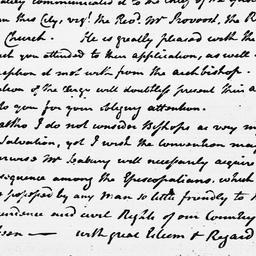 ately communicated it to the Chief of the
in this City, viz.t the Rev.d Mr Provoost, the R
Church. He is greatly pleased with the
ch you attended to their application, as well
eption it met with from the archbishop.
of the Clergy will doubtless present this a
to you for your obliging attention.
altho I do not consider Bishops as very n
Salvation, yet I wish the Convention may
Mr Seabury will necessarily acquire
sequence among the Episcopalians, which
proposed by any Man so little friendly to
endence and civil Rights of our Country
with great Esteem & Regard